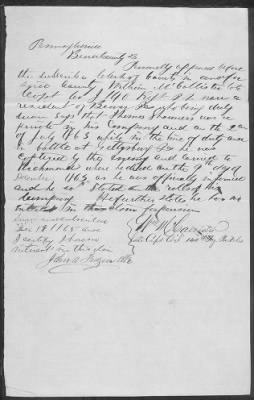 Pennsylvania
Beaver County SS
Personally appeared before
the subscriber Clerk of Courts in and for
said County William McCallister late
Capt Co I 140 Regt P.V. now a
resident of Beaver Pa who being duly
sworn says that Thomas was a
private in his Company and on the 2nd
of July 1863 while in the line of duty and
in battle at Gettysburg Pa was
captured by the enemy and carried to
Richmond where he died on the day of
December 1863 as he was officially informed
and he so stated on the rolls of his
Company He further states he has no
interest in this claim for pension
Sworn and subscribed
Dec 18 1865 and
I certify I have no
interest in this claim
John A Clk
Wm McCallister
late Capt Co I 140 Regt Pa Vols